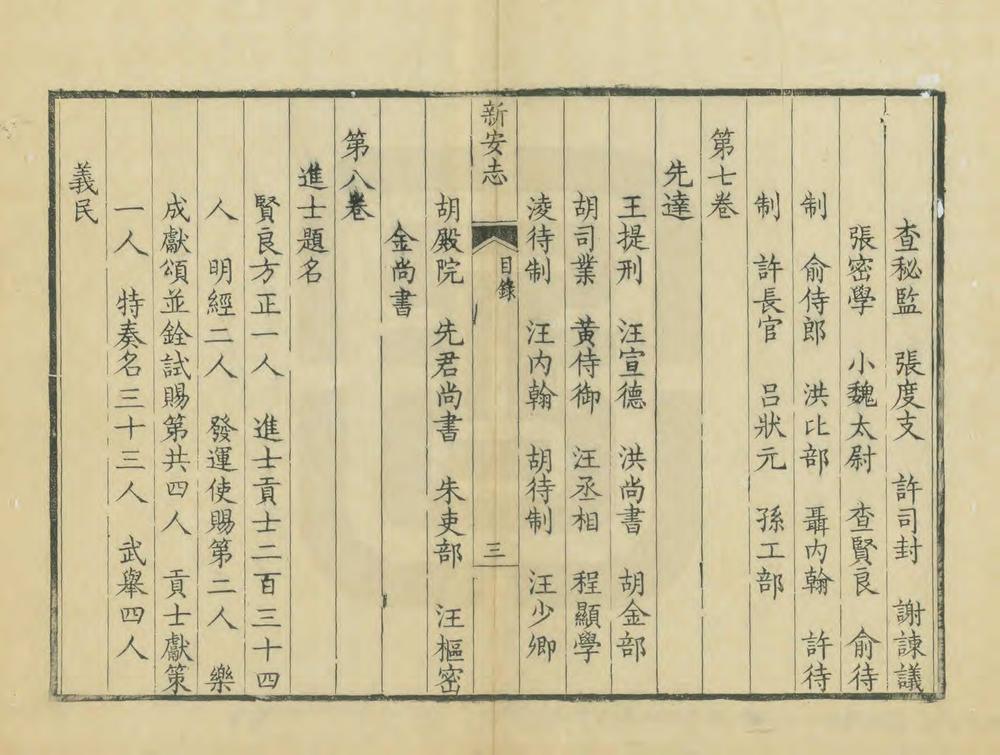 查秘監　張度支　許司封　謝諫議
張密學　小魏太尉　查賢良　俞待
制　俞侍郎　洪比部　聶內翰　許待
制　許長官　呂狀元　孫工部
第七卷
先達
王提刑　汪宣德　洪尚書　胡金部
胡司業　黃侍御　汪丞相　程顯學
淩待制　汪內翰　胡待制　汪少卿
新安志　目錄　三
胡殿院　先君尚書　朱吏部　汪樞密
金尚書
第八卷
進士題名
賢良方正一人　進士貢士二百三十四
人　明經二人　發運使賜第二人　樂
成獻頌並銓試賜第共四人　貢士獻策
一人　特奏名三十三人　武舉四人
義民